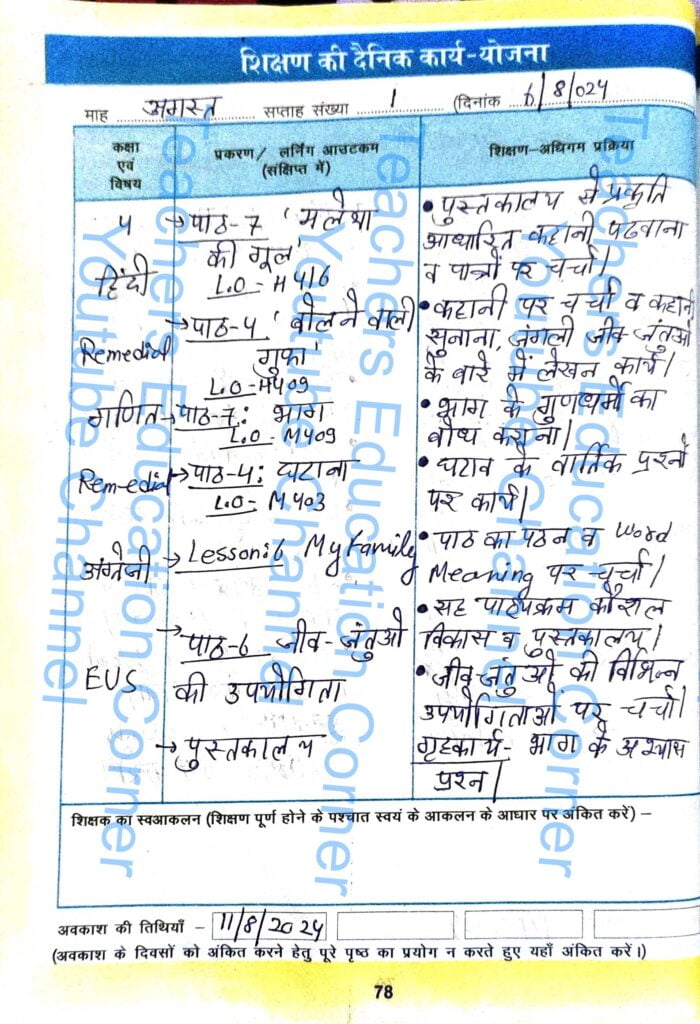 शिक्षण की दैनिक कार्य-योजना
माह अगस्त सप्ताह संख्या 1 (दिनांक 6/8/024
कक्षा एवं विषय
प्रकरण/ लर्निंग आउटकम (संक्षिप्त में)
शिक्षण-अधिगम प्रक्रिया
4
हिंदी
→ पाठ-7 'मलेथा
की गूल'
L.O - H416
Remedial
→ पाठ-4 'बोलने वाली
गुफा'
L.O - H409
गणित → पाठ-7: भाग
L.O - M409
Remedial → पाठ-4: घटाना
L.O - M403
अंग्रेजी → Lesson: 6 My Family
EUS
→ पाठ-6 जीव-जंतुओ
की उपयोगिता
→ पुस्तकालय
• पुस्तकालय से प्रकृति
आधारित कहानी पढवाना
व पात्रों पर चर्चा।
• कहानी पर चर्चा व कहानी
सुनाना, जंगली जीव जंतुओ
के बारे में लेखन कार्य।
• भाग के गुणधर्मो का
बोध कराना।
• घटाव के वार्तिक प्रश्नो
पर कार्य।
• पाठ का पठन व Word
Meaning पर चर्चा।
• सह पाठ्यक्रम कौशल
विकास व पुस्तकालय।
• जीव जंतुओ की विभिन्न
उपयोगिताओं पर चर्चा।
गृहकार्य - भाग के अभ्यास
प्रश्न।
शिक्षक का स्वआकलन (शिक्षण पूर्ण होने के पश्चात स्वयं के आकलन के आधार पर अंकित करें) –
अवकाश की तिथियाँ - 11/8/2024
(अवकाश के दिवसों को अंकित करने हेतु पूरे पृष्ठ का प्रयोग न करते हुए यहाँ अंकित करें।)
78
Teachers Education Corner
Youtube Channel
Teachers Education Corner
Youtube Channel
Teachers Education Corner
Youtube Channel